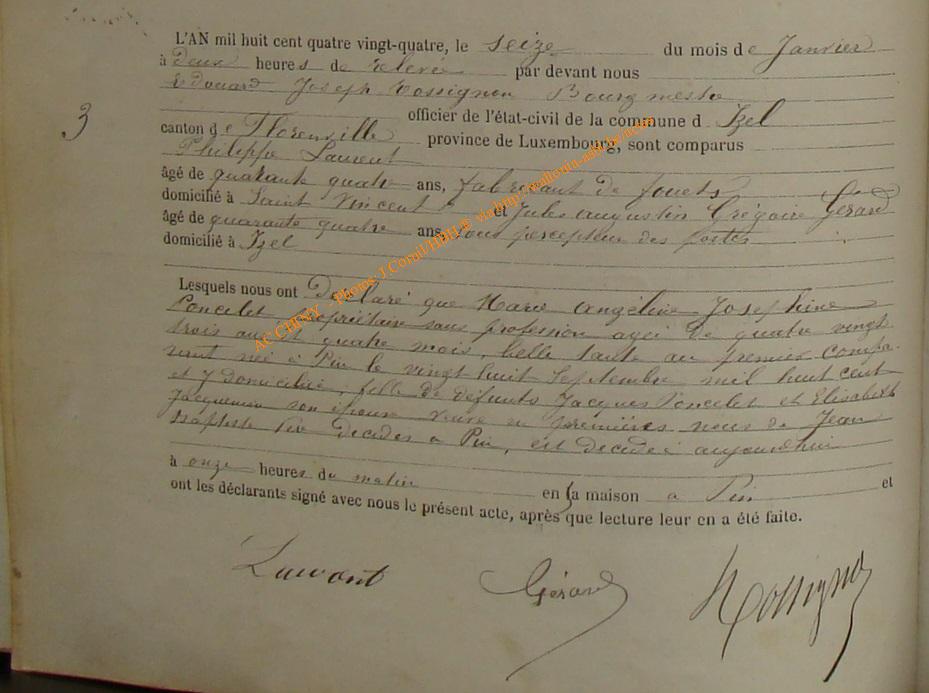 L'AN mil huit cent quatre vingt-quatre, le seize du mois de Janvier
à deux heures de relevée par devant nous
Edouard Joseph Rossignon Bourgmestre
officier de l'état-civil de la commune d Izel
3
canton de Florenville province de Luxembourg, sont comparus
Philippe Laurent
âgé de quarante quatre ans, fabricant de fouets
domicilié à Saint Vincent et Jules Augustin Grégoire Gérard
âgé de quarante quatre ans, sous percepteur des postes
domicilié à Izel
Lesquels nous ont Déclaré que Marie Angéline Josephine
Poncelet propriétaire sans profession agée de quatre vingt
trois ans et quatre mois, belle tante au premier compa-
rant née à Pin le vingt huit Septembre mil huit cent
et y domiciliée, fille de défunts Jacques Poncelet et Elisabeth
Jacquemin son épouse veuve en premières noces de Jean
Baptiste décédés à Pin, est décédée aujourdhui
à onze heures du matin en sa maison a Pin et
ont les déclarants signé avec nous le présent acte, après que lecture leur en a été faite.
Laurent Gérard Rossignon
ACCHINY - Photos J.Cornil/HBH @ via http://wallonia-asbl.be.com